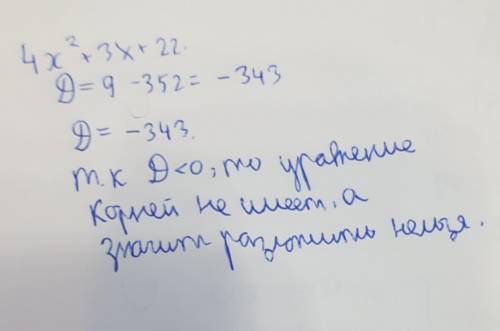 4x²+3x+22.
D=9-352=-343
D=-343.
т.к D<0, то уравнение
корней не имеет, а
значит разложить нельзя.